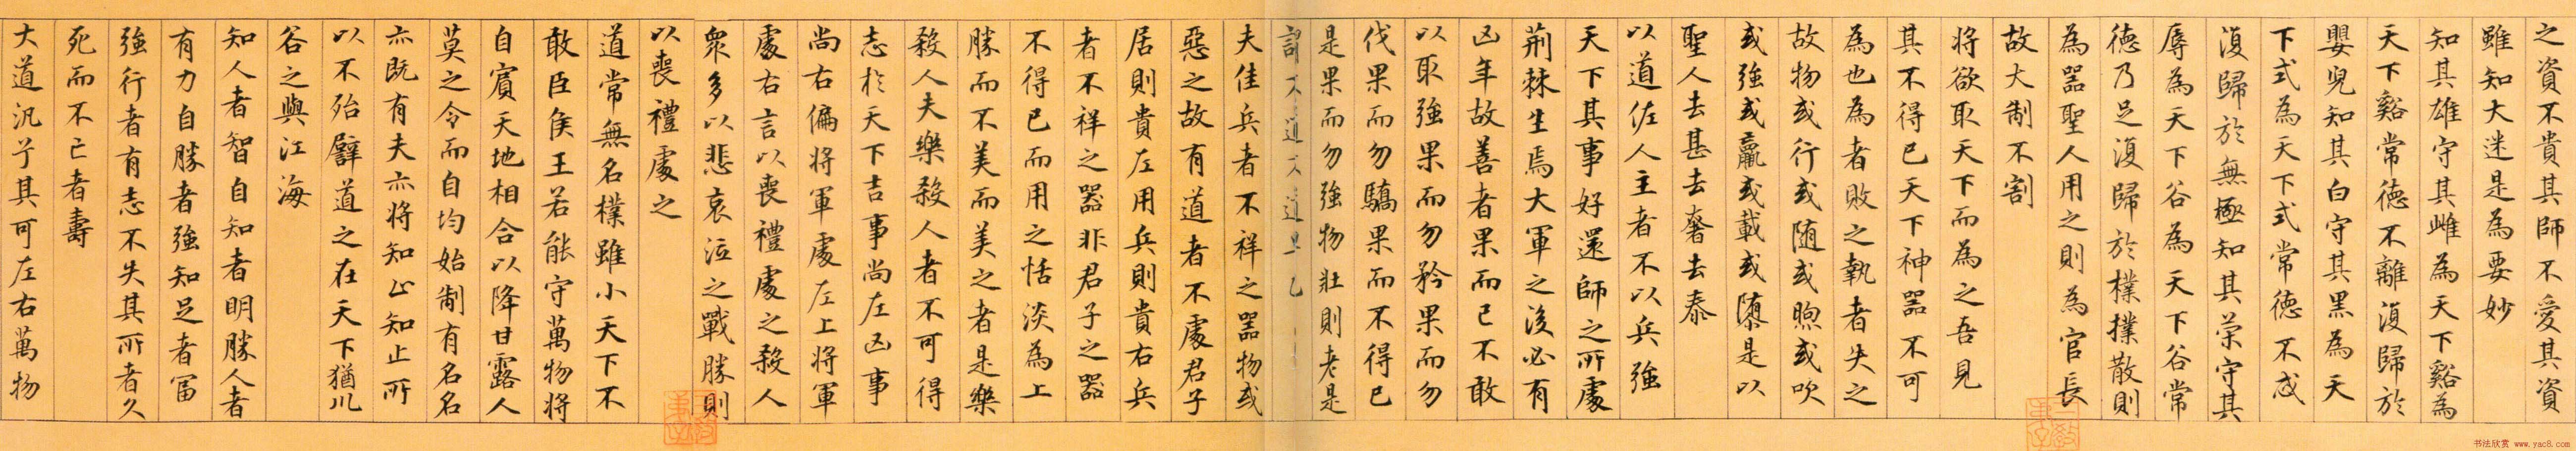 之資不貴其師不愛其資
雖知大迷是為要妙
知其雄守其雌為天下谿為
天下谿常德不離復歸於
嬰兒知其白守其黑為天
下式為天下式常德不忒
復歸於無極知其榮守其
辱為天下谷為天下谷常
德乃足復歸於樸樸散則
為器聖人用之則為官長
故大制不割
將欲取天下而為之吾見
其不得已天下神器不可
為也為者敗之執者失之
故物或行或随或煦或吹
或強或羸或載或隳是以
聖人去甚去奢去泰
以道佐人主者不以兵強
天下其事好還師之所處
荆棘生焉大軍之後必有
凶年故善者果而已不敢
以取強果而勿矜果而勿
伐果而勿驕果而不得已
是果而勿強物壯則老是
謂不道不道早已
夫佳兵者不祥之器物或
惡之故有道者不處君子
居則貴左用兵則貴右兵
者不祥之器非君子之器
不得已而用之恬淡為上
勝而不美而美之者是樂
殺人夫樂殺人者不可得
志於天下吉事尚左凶事
尚右偏將軍處左上將軍
處右言以喪禮處之殺人
衆多以悲哀泣之戰勝則
以喪禮處之
道常無名樸雖小天下不
敢臣侯王若能守萬物將
自賓天地相合以降甘露人
莫之令而自均始制有名名
亦既有夫亦將知止知止所
以不殆譬道之在天下猶川
谷之與江海
知人者智自知者明勝人者
有力自勝者強知足者富
強行者有志不失其所者久
死而不亡者壽
大道汎兮其可左右萬物
书法欣赏 www.yac8.com